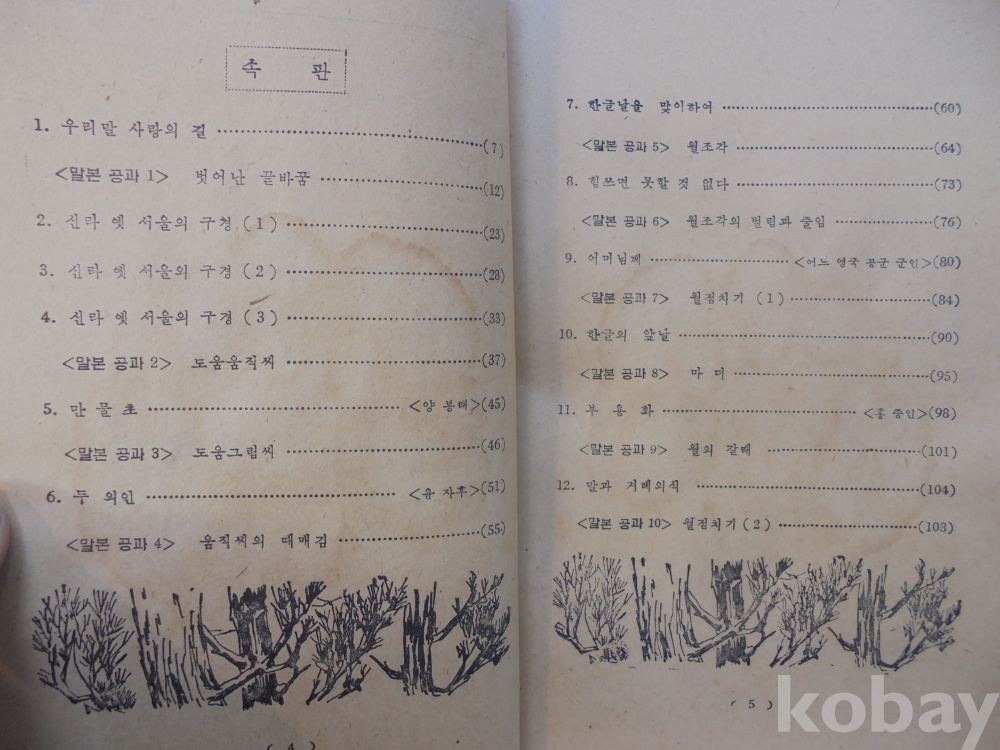 속 판
1. 우리말 사랑의 길 (7)
<말본 공과 1> 벗어난 끝바꿈 (12)
2. 신라 옛 서울의 구경 (1) (23)
3. 신라 옛 서울의 구경 (2) (28)
4. 신라 옛 서울의 구경 (3) (33)
<말본 공과 2> 도움움직씨 (37)
5. 만물초 <양 봉태>(45)
<말본 공과 3> 도움그림씨 (46)
6. 두 의인 <유 자후>(51)
<말본 공과 4> 움직씨의 때매김 (55)
( 4 )
7. 한글날을 맞이하여 (60)
<말본 공과 5> 월조각 (64)
8. 힘쓰면 못할 것 없다 (73)
<말본 공과 6> 월조각의 벌림과 줄임 (76)
9. 어머님께 <어느 영국 공군 군인>(80)
<말본 공과 7> 월점치기 (1) (84)
10. 한글의 앞날 (90)
<말본 공과 8> 마 디 (95)
11. 부 용 화 <홍 종인>(98)
<말본 공과 9> 월의 갈래 (101)
12. 말과 겨레의식 (104)
<말본 공과 10> 월점치기 (2) (108)
( 5 )
kobay